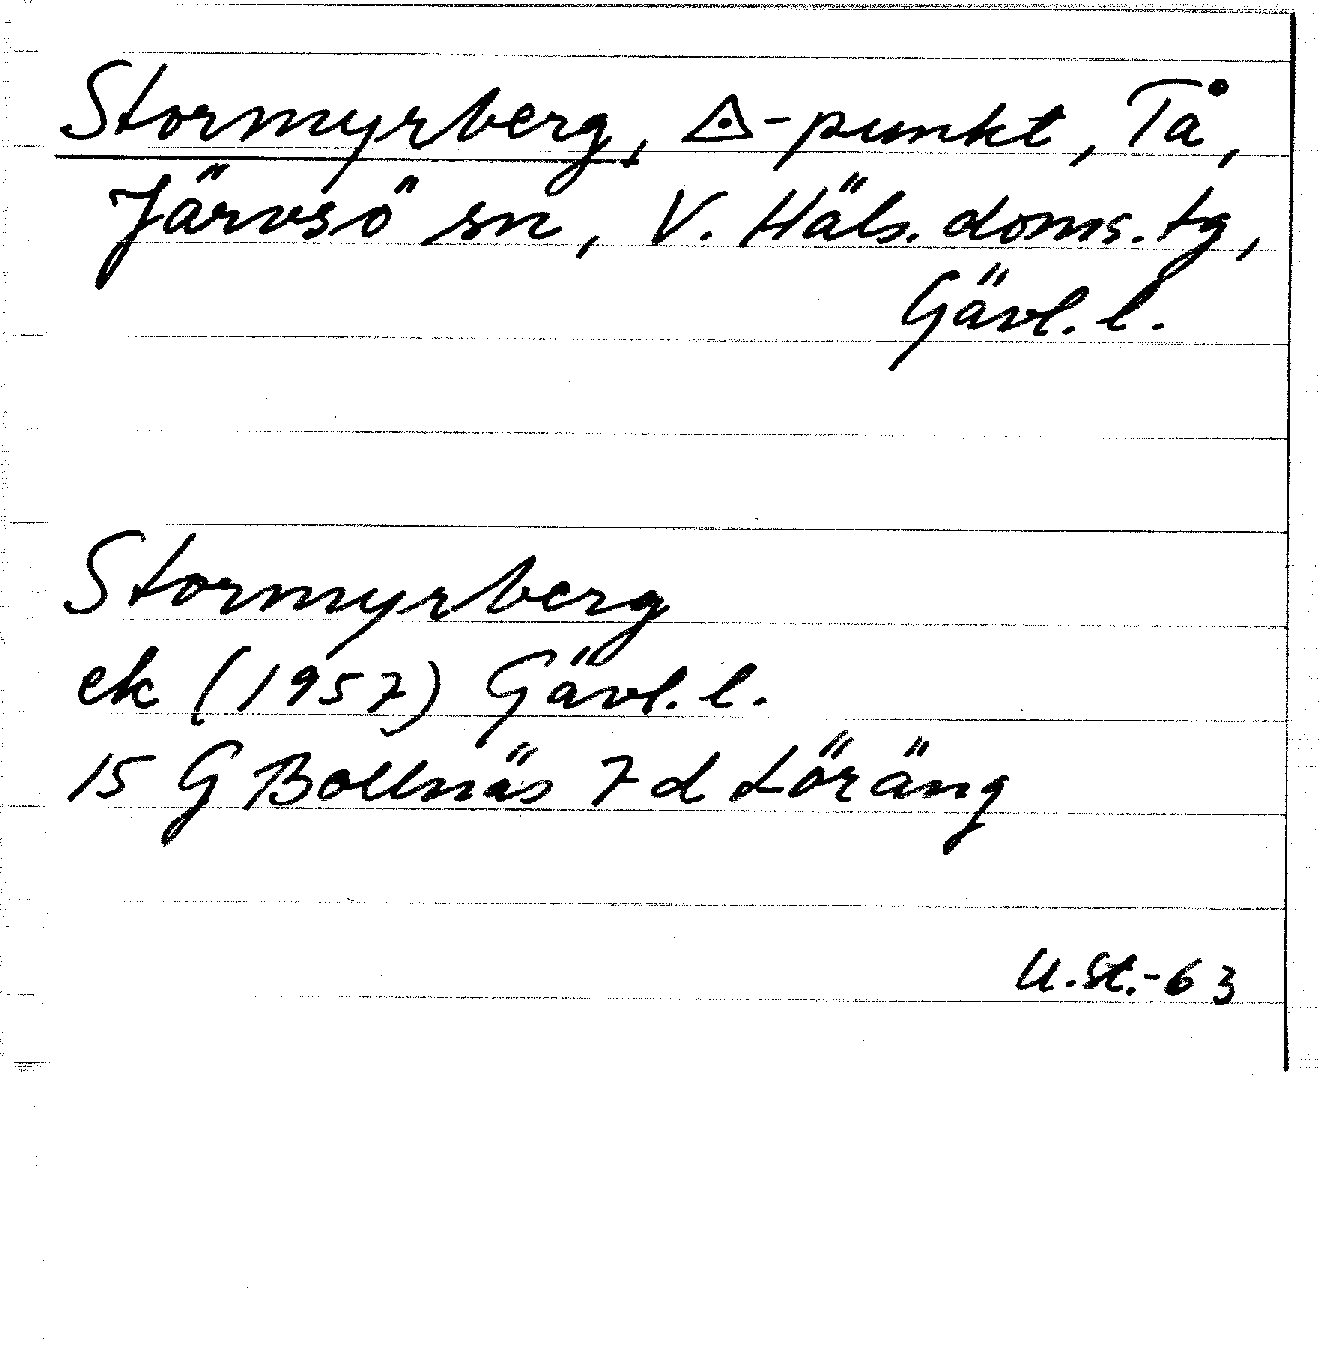 Stormyrberg, △-punkt, Tå,
Järvsö sn, V. Häls. doms. tg,
Gävl. l.
Stormyrberg
ek (1957) Gävl. l.
15 G Bollnäs 7 d Löräng
U.St.-63